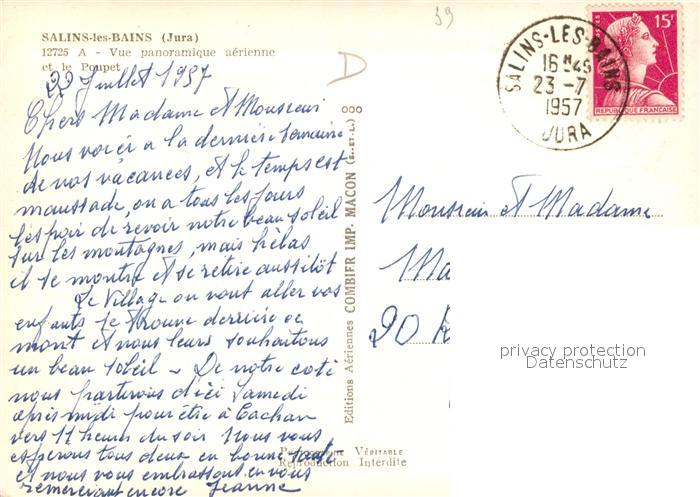 SALINS-les-BAINS (Jura)
12725 A - Vue panoramique aérienne
et le Poupet
22 Juillet 1957
Chers Madame et Monsieur
Nous voici a la dernière Semaine
de nos vacances, et le temps est
maussade, on a tous les jours
l'espoir de revoir notre beau soleil
sur les montagnes, mais hélas
il se montre et se retire aussitôt
Le Village ou vont aller vos
enfants se trouve derrière ce
mont et nous leurs souhaitons
un beau soleil - De notre coté
nous partirons d'ici Samedi
après midi pour être à Cachan
vers 11 heures du soir Nous vous
espérons tous deux en bonne santé
et nous vous embrassons en vous
remerciant encore Jeanne
39
D
Editions Aériennes COMBIER IMP. MACON (S.-ET-L.) 000
Véritable
Reproduction Interdite
SALINS-LES-BAINS
16H45
23 -7
1957
JURA
POSTES
15F
REPUBLIQUE FRANÇAISE
Monsieur et Madame
Ma
20
privacy protection
Datenschutz